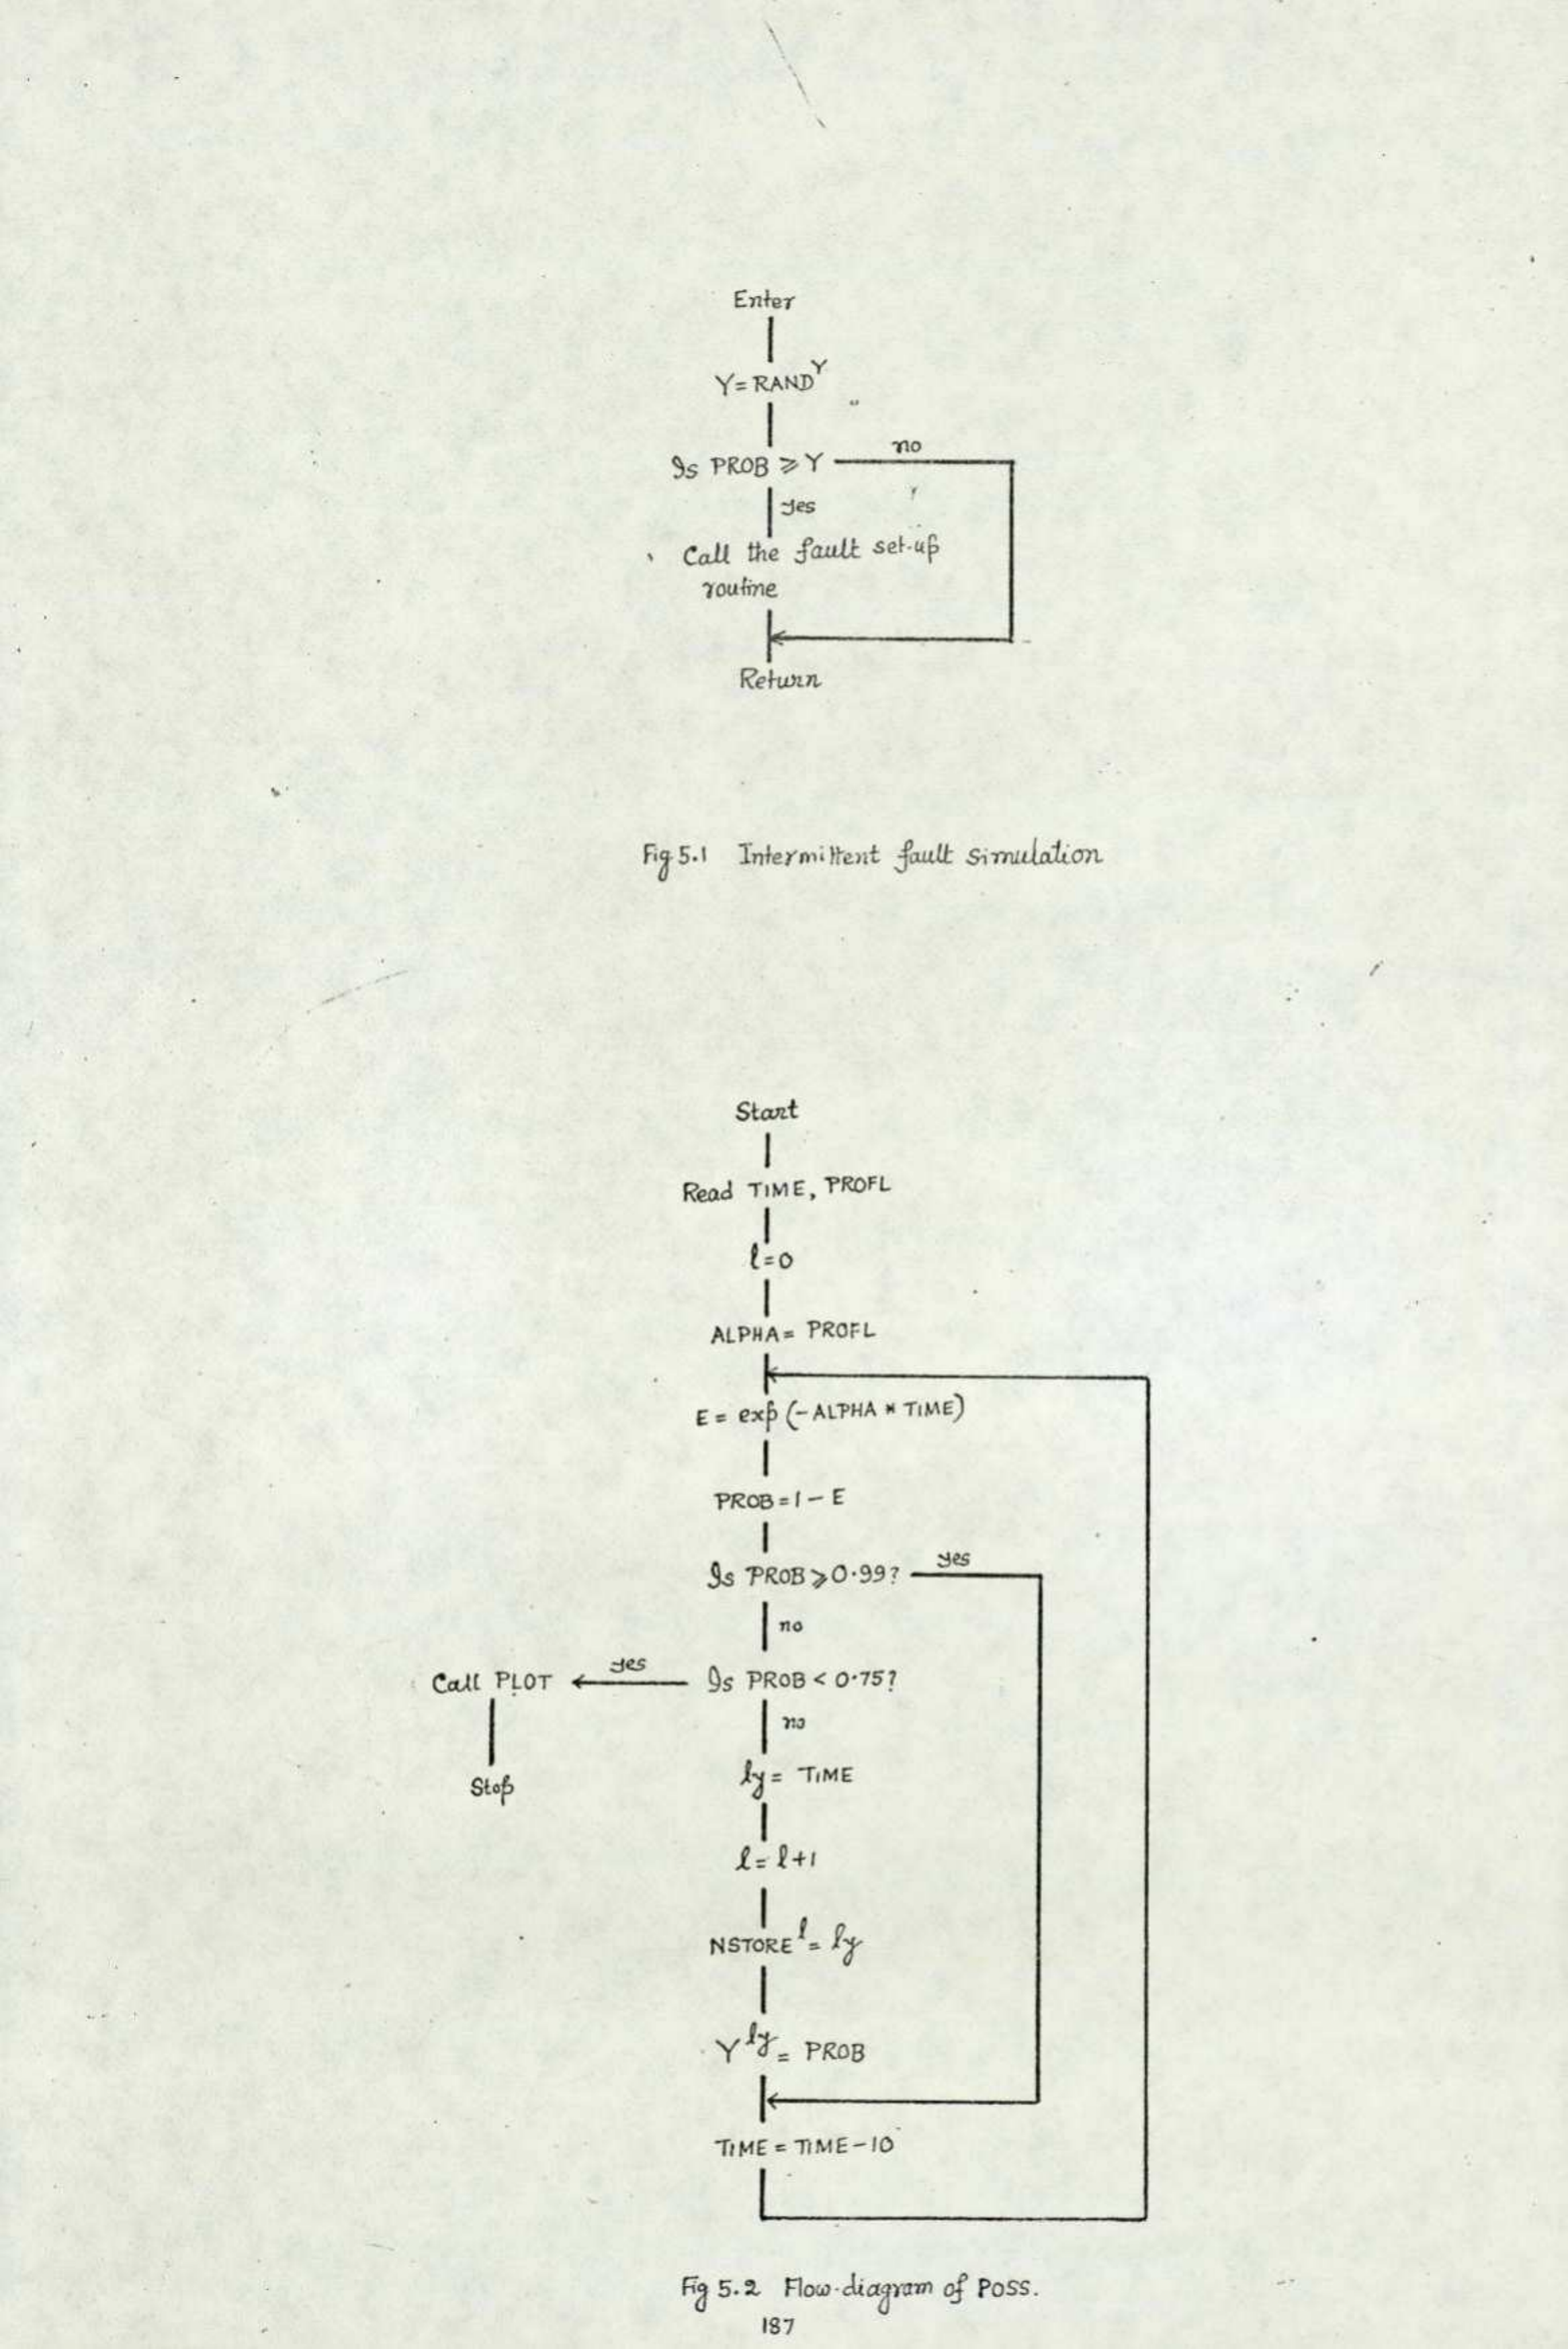 Enter
Y=RAND^Y
Is PROB ⩾ Y
no
yes
Call the fault set-up
routine
Return
Fig 5.1 Intermittent fault simulation
Start
Read TIME, PROFL
l=0
ALPHA= PROFL
E = exp (-ALPHA * TIME)
PROB = 1 - E
Is PROB ⩾ 0.99?
yes
no
Is PROB < 0.75?
yes
Call PLOT
Stop
no
ly= TIME
l= l+1
NSTORE^l= ly
Y^ly= PROB
TIME = TIME-10
Fig 5.2 Flow-diagram of POSS.
187